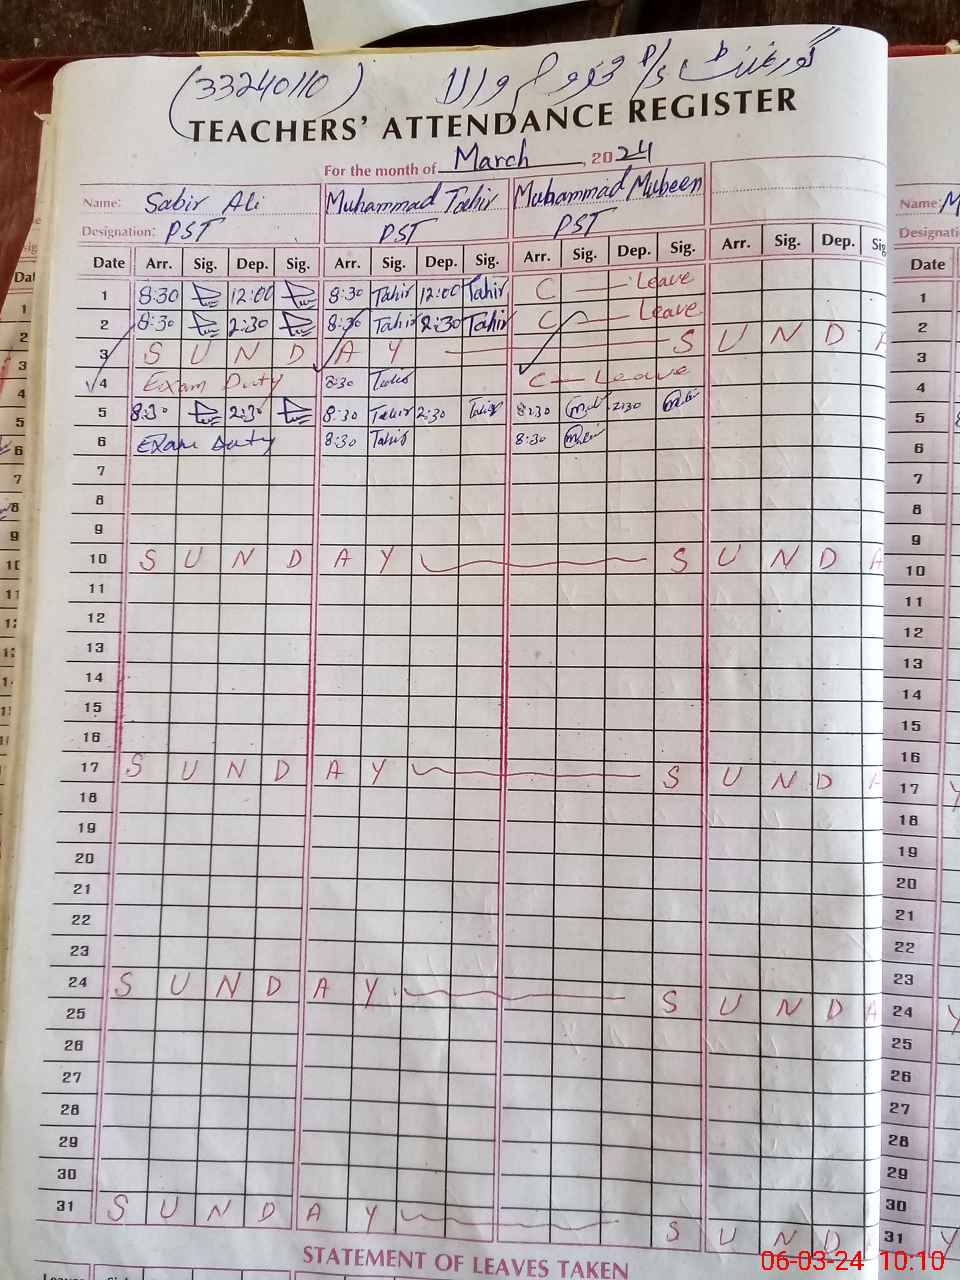 (33240110) گورنمنٹ P/S مخدوم والا
TEACHERS' ATTENDANCE REGISTER
For the month of March, 2024
Name: Sabir Ali Muhammad Tahir Muhammad Mubeen
Designation: PST PST PST
Date Arr. Sig. Dep. Sig. Arr. Sig. Dep. Sig. Arr. Sig. Dep. Sig. Arr. Sig. Dep. Sig
1 8:30 12:00 8:30 Tahir 12:00 Tahir C — Leave
2 8:30 2:30 8:30 Tahir 2:30 Tahir C — Leave
3 S U N D A Y — S U N D A
4 Exam Duty 8:30 Tahir C — Leave
5 8:30 2:30 8:30 Tahir 2:30 Tahir 8:30 2:30
6 Exam Duty 8:30 Tahir 8:30
7
8
9
10 S U N D A Y — S U N D A
11
12
13
14
15
16
17 S U N D A Y — S U N D A
18
19
20
21
22
23
24 S U N D A Y — S U N D A
25
26
27
28
29
30
31 S U N D A Y — S U N D
STATEMENT OF LEAVES TAKEN
Name: M
Designati
Date
1
2
3
4
5
6
7
8
9
10
11
12
13
14
15
16
17 Y
18
19
20
21
22
23
24 Y
25
26
27
28
29
30
31 Y
06-03-24 10:10